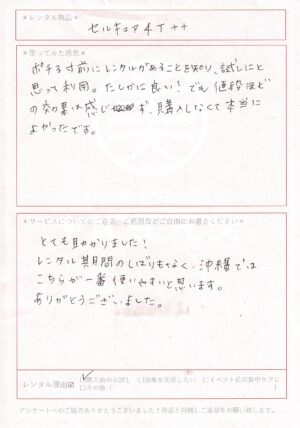 ＊レンタル商品＊
セルキュア4T++
＊使ってみた感想＊
ポチる寸前にレンタルがあることを知り、試しにと
思って利用。たしかに良い！でも値段ほど
の効果は感じず、購入しなくて本当に
よかったです。
＊サービスについてのご意見、ご感想などご自由にお書きください＊
とても助かりました！
レンタル期間のしばりもなく、沖縄では
こちらが一番使いやすいと思います。
ありがとうございました。
レンタル理由
☑購入前のお試し □効果を実感したい □イベント前の集中ケアに
□その他（
アンケートへのご協力ありがとうございました！商品と同梱しご返却をお願い致します。